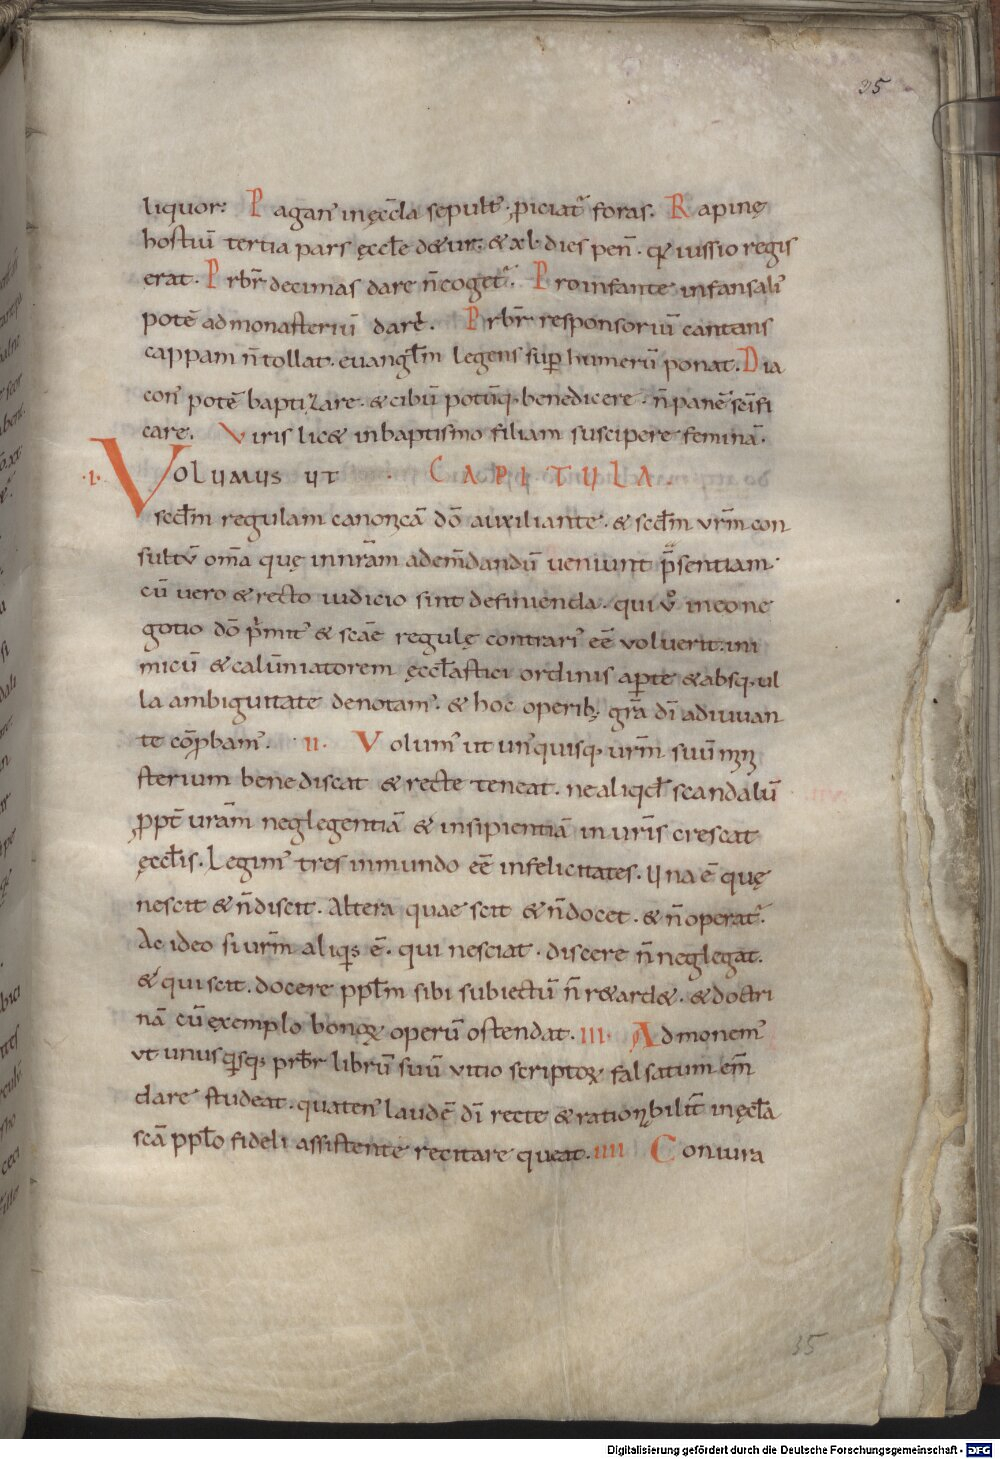 35
liquor: Pagan' in ęccl̄a sepult' ꝓiciat᷒ foras. Rapinę
hostiū tertia pars ęccl̄e detur: & xl· dies pen̄· qr iussio regis
erat· Prbr̄ decimas dare n̄ coget᷒. Pro infante infansali'
potē ad monasteriū dare. Prbr̄ responsoriū cantans
cappam n̄ tollat· euangl̄m legens suꝑ humerū ponat. Dia
con' potē baptizare· & cibū potūq· benedicere· n̄ panē sc̄ifi
care. Viris lic& in baptismo filiam suscipere feminā.
·I· VOLUMUS UT CAPITULA.
secd̄m regulam canonicā dō auxiliante· & secd̄m ur̄m con
sultū om̄a quę in nr̄am ad em̄dandū ueniunt p̄sentiam·
cū uero & recto iudicio sint definienda· qui u° in eo ne
gotio dō p̄mit' & sc̄ae regulę contrari' eē uoluerit· ini
micū & calūniatorem ęccl̄astici ordinis aꝑte & absq· ul
la ambiguitate denotam'· & hoc operib; gr̄a dī adiuuan
te cōꝓbam'. ·II· Volum' ut un'quisq· ur̄m suū miñ
sterium bene discat & recte teneat. ne aliqd̄ scandalū
ꝓpt̄ ur̄am neglegentiā & insipientiā in ur̄is crescat
ęccl̄is. Legim' tres in mundo eē infelicitates. Una ē quę
nescit & n̄ discit. Altera quae scit & n̄ docet. & n̄ operat᷒.
Ac ideo si ur̄m aliqis ē· qui nesciat· discere n̄ neglegat.
& qui scit. docere ppl̄m sibi subiectū n̄ r&ard&. & doctri
nā cū exemplo bonoꝝ operū ostendat. III· Admonem'
ut unusqisq· prbr̄ librū suū uitio scriptoꝝ falsatum em̄
dare studeat· quaten' laudē dī recte & rationabilit̄ in ęcl̄a
sc̄a ppl̄o fideli assistente recitare queat. IIII Coniura
35
Digitalisierung gefördert durch die Deutsche Forschungsgemeinschaft - DFG